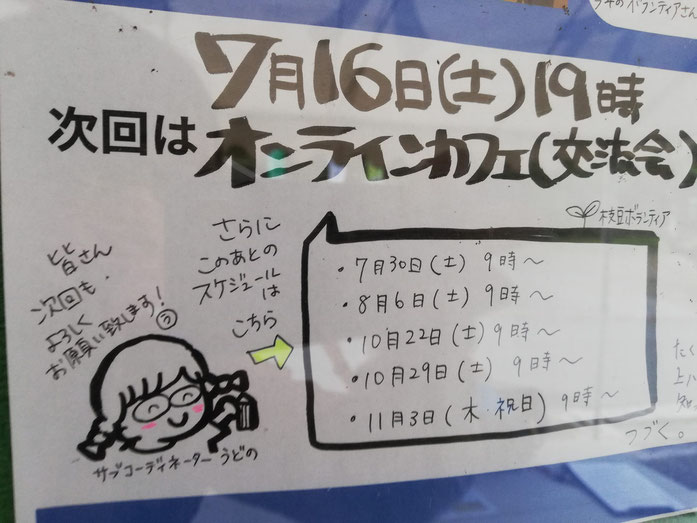 今年のボランティアさん
7月16日(土)19時
次回は
オンラインカフェ(交流会)
枝豆ボランティア
さらに
このあとの
スケジュールは
こちら
・7月30日(土) 9時〜
・8月6日(土) 9時〜
・10月22日(土) 9時〜
・10月29日(土) 9時〜
・11月3日(木・祝日) 9時〜
皆さん
次回も
よろしく
お願い致します!
サブコーディネーター うどの
たく
知
つづく。